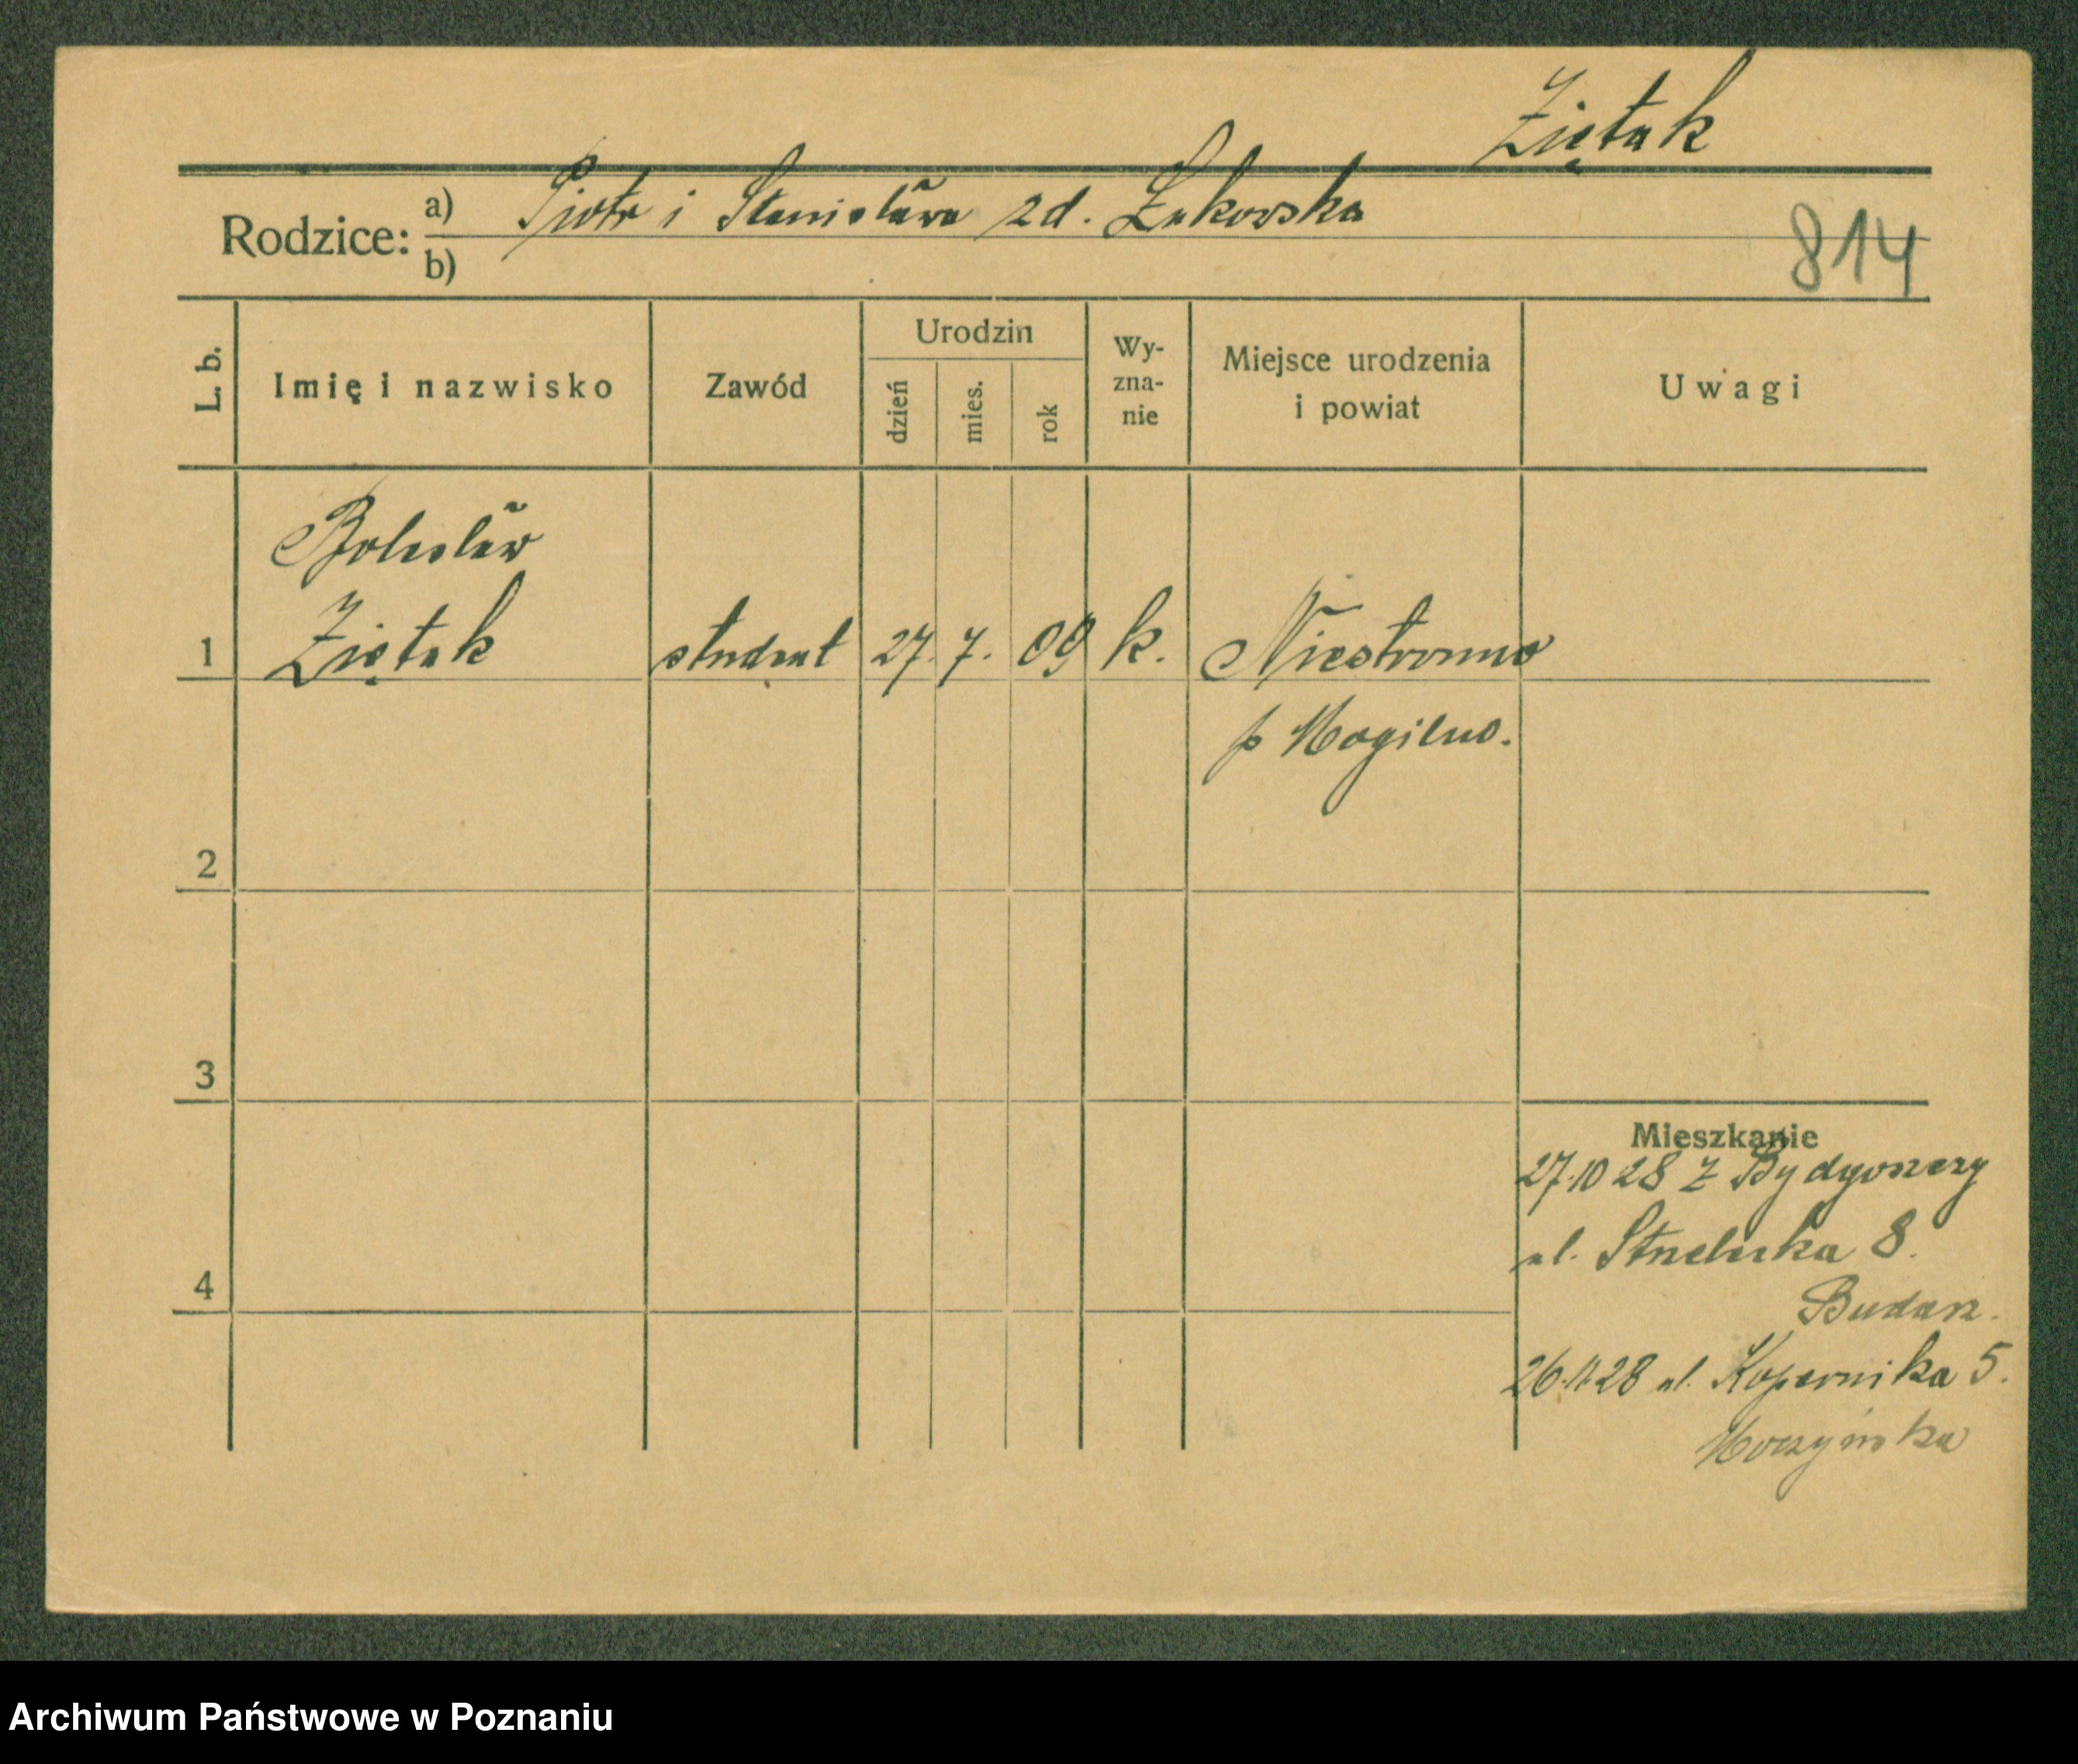 Ziętak
Rodzice: a) Piotr i Stanisława zd. Żakowska
b)
814
L. b. Imię i nazwisko Zawód Urodzin dzień mies. rok Wy-zna-nie Miejsce urodzenia i powiat Uwagi
Bolesław
1 Ziętak student 27. 7. 09 k. Niestronno
p Mogilno.
2
3
Mieszkanie
27.10 28 z Bydgoszczy
ul. Strzelecka 8.
4
26.11 28 ul. Kopernika 5.
Archiwum Państwowe w Poznaniu